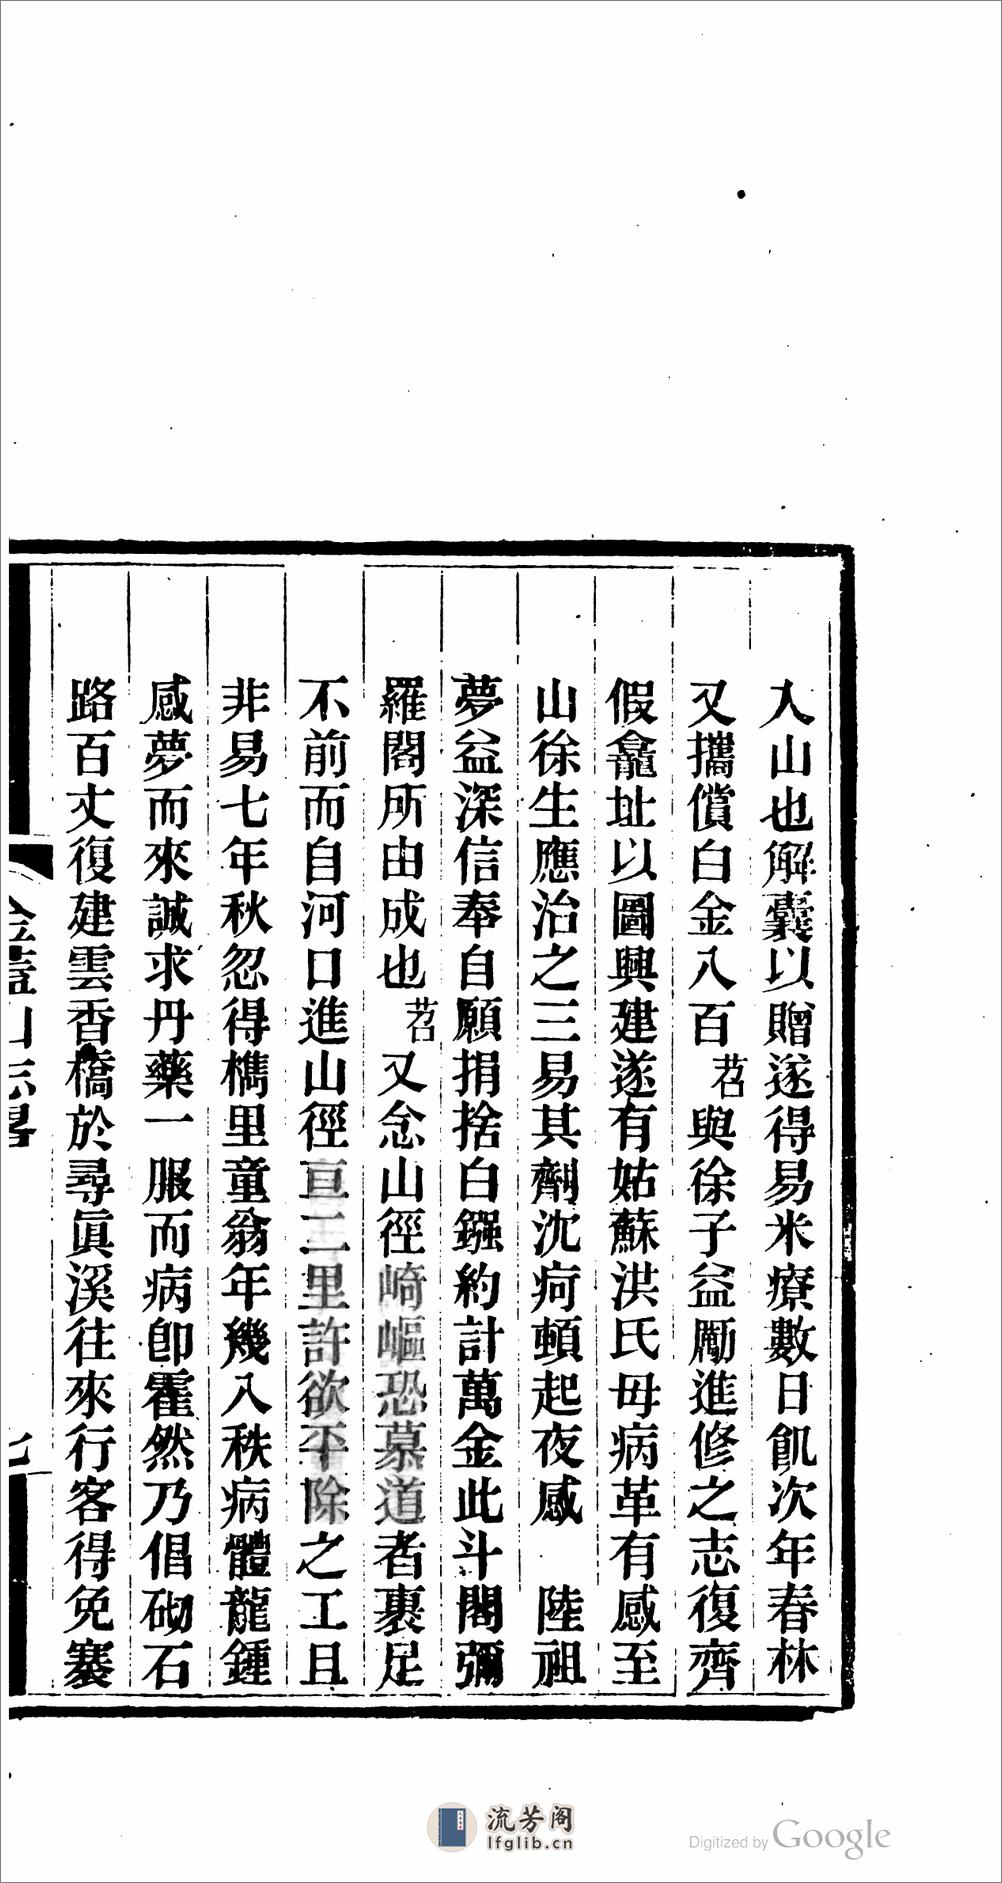 入山也解囊以贈遂得易米療數日飢次年春林
又攜償白金八百苕與徐子益勵進修之志復齊
假龕址以圖興建遂有姑蘇洪氏母病革有感至
山徐生應治之三易其劑沈疴頓起夜感　陸祖
夢益深信奉自願捐捨白鏹約計萬金此斗閣彌
羅閣所由成也苕又念山徑崎嶇恐慕道者裹足
不前而自河口進山徑亘二里許欲平除之工且
非易七年秋忽得檇里童翁年幾八秩病體龍鍾
感夢而來誠求丹藥一服而病卽霍然乃倡砌石
路百丈復建雲香橋於尋眞溪往來行客得免蹇
金蓋山志畧
七
流芳阁
lfglib.cn
Digitized by Google